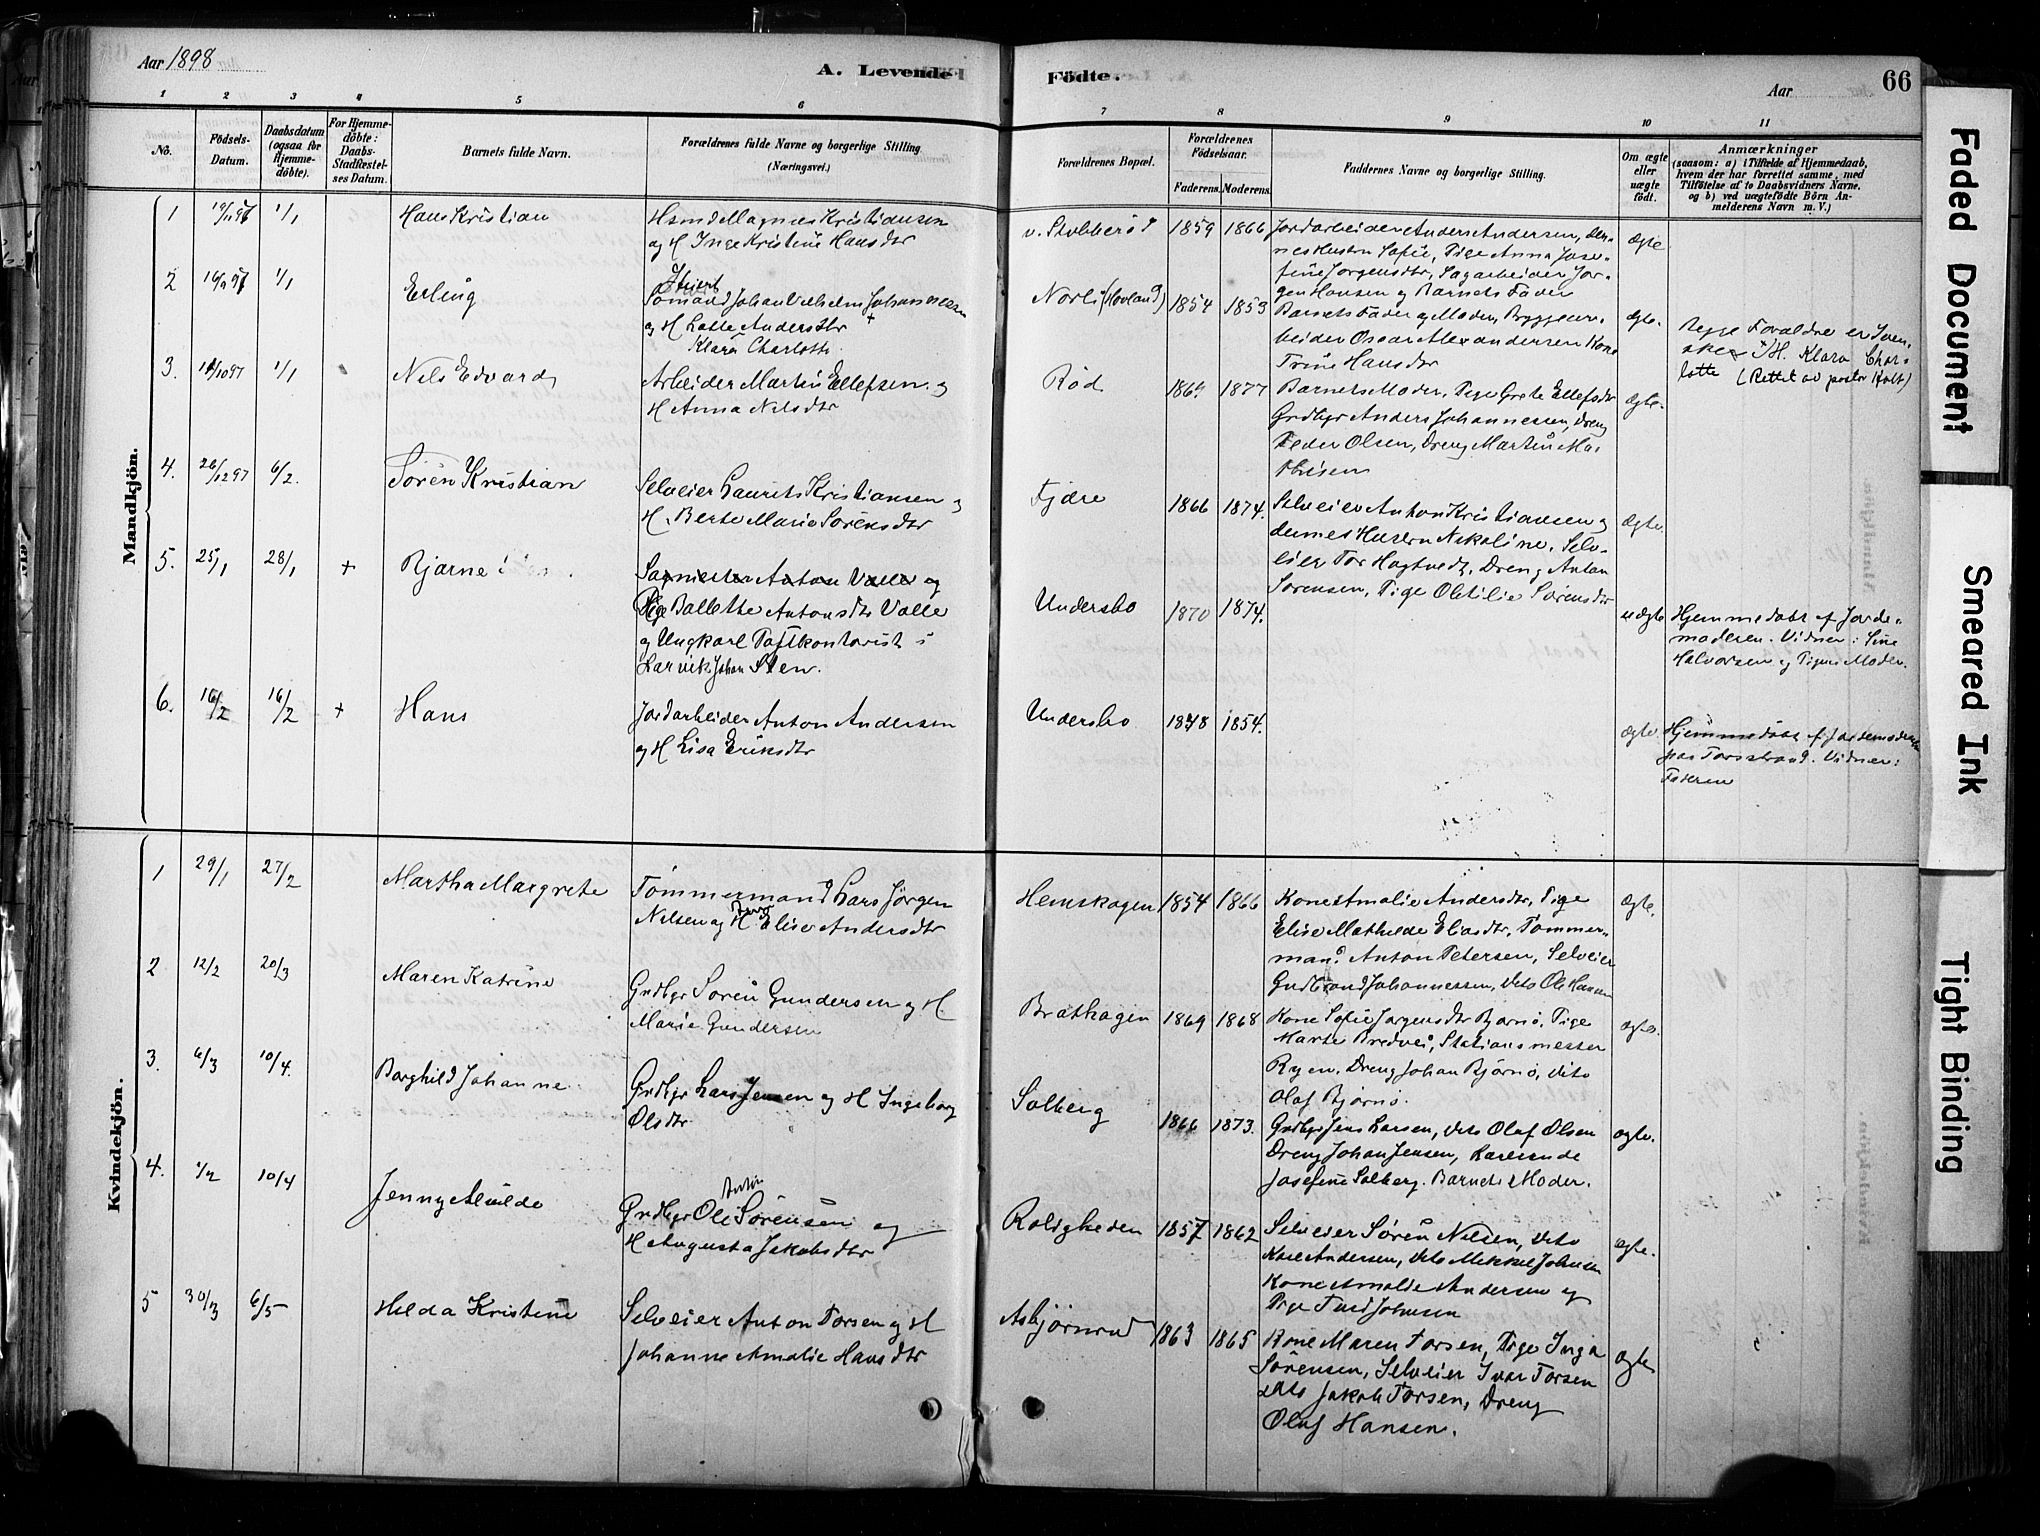 Aar 1898
A. Levende
Födte.
Aar
66
1 2 3 4 5 6 7 8 9 10 11
No.
Födsels-
Datum.
Daabsdatum
(ogsaa for
Hjemme-
döbte).
For Hjemme-
döbte:
Daabs-
Stadfæstel-
ses Datum.
Barnets fulde Navn.
Forældrenes fulde Navne og borgerlige Stilling
(Næringsvei.)
Forældrenes Bopæl.
Forældrenes
Födselsaar.
Faderens. Moderens.
Faddernes Navne og borgerlige Stilling.
Om ægte
eller
uægte
födt.
Anmærkninger
(saasom: a) i Tilfælde af Hjemmedaab,
hvem der har forrettet samme, med
Tilföielse af to Daabsvidners Navne,
og b) ved uægtefödte Börn An-
melderens Navn m. V.)
Mandkjön.
1 19/11 97 1/1
Hans Kristian
Magnus Kristiansen
og H. Inge Kristine Hansdtr
v. Stubberød
1859 1866
Jordarbeider Anders Andersen, den-
nes Hustru Sofie, Pige Anna Jose-
fine Jørgensdtr, Sagarbeider Jør-
gen Hansen og Barnets Fader
Ægte
2 1/1
Erling
Sømand Johan Vilhelm Johannesen
og H. Lotte Andersdtr
Klara Charlotte
Norli (Hovland)
1854 1859
Barnets Fader og Moder, Bryggear-
beider Oscar Alexandersen Kone
Trine Hansdtr
Ægte.
Begge Forældre er Sven-
ske H. Klara Char-
lotte (Rettet av pastor Holt)
3. 1/1
Nils Edvard
Arbeider Martin Ellefsen og
H Anna Nilsdtr
Rød
1877
Barnets Moder, Pige Grete Ellefsdtr
Grdbgr Anders Johannessen, Dreng
Peder Olsen, Dreng Martin Ma-
thisen
Ægte.
4. 26/12 97 6/2.
Søren Kristian
Selveier Laurits Kristiansen og
H. Berte Marie Sørensdtr
Fjære
1866 1874.
Selveier Anton Kristiansen og
dennes Hustru Nikoline, Selv-
eier Tor Hagtvedt, Dreng Anton
Sørensen, Pige Oletilie Sørensdtr
Ægte.
5. 25/1 28/1 +
Bjarne
Anton Valle og
Pige Ballette Antonsdtr Valle
og Ungkarl Postkontorist i
Larvik Johan Sten.
Undersbo
1870 1874.
uægte
Hjemmedøbt af Jorde-
moderen. Vidner: Sine
Halvorsen og Pigens Moder.
6. 16/2 16/2 +
Hans
Jordarbeider Anton Andersen
og H Lisa Eriksdtr
Undersbo
1848 1854.
ægte.
Hjemmedøbt af Jordemoderen
paa Torsstrand. Vidner:
Faderen
Kvindekjön.
1 29/1 27/2
Martha Margrete
Tømmermand Lars Jørgen
Nilsen og H. Elise Andersdtr
Hemskogen
1854 1866
Kone Amalie Andersdtr, Pige
Elise Mathilde Eliasdtr, Tømmer-
mand Anton Petersen, Selveier
Gudbrand Johannessen, dito Ole Hansen
Ægte.
2 12/2 20/3
Maren Katrine
Grdbgr Søren Gundersen og H.
Marie Gundersen
Brathagen
1869 1868
Kone Sofie Jørgensdtr Bjørnø, Pige
Marte Bredvei, Stationsmester
Ryen, Dreng Johan Bjørnø, dito
Olaf Bjørnø.
ægte.
3. 6/3 10/4.
Borghild Johanne
Grdbgr Lars Jensen og H Ingeborg
Olsdtr
Solberg
1866 1873.
Grdbgr Jens Larsen, dito Olaf Olsen
Dreng Johan Jensen,
Josefine Solberg. Barnets Moder.
ægte.
4. 10/4
Jenny Alvilde
Anton
Grdbgr Ole Sørensen og
H Augusta Jakobsdtr
Roligheden
1857 1862
Selveier Søren Nilsen, dito
Karl Andersen, dito Mikkel Johnsen
Kone Amalie Andersen og
Pige Johnsen
Ægte.
5 30/3 6/5
Hilda Kristine
Selveier Anton Torsen og H
Johanne Amalie Hansdtr
Asbjørnrød
1863 1865
Kone Maren Torsen, Pige Inga
Sørensen, Selveier Ivar Torsen
dito Jakob Torsen, Dreng
Olaf Hansen.
ægte
Faded Document
Smeared Ink
Tight Binding